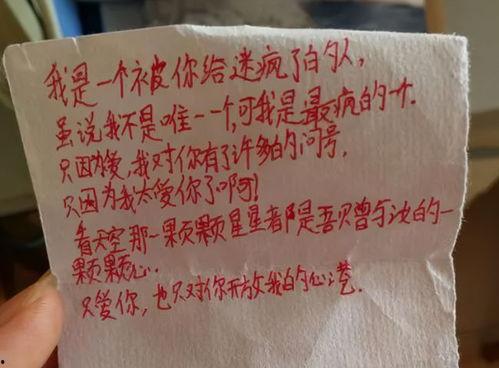 我是一个被你给迷疯了的人,
虽说我不是唯一一个,可我是最疯的一个.
只因为爱,我对你有了许多的问号,
只因为我太爱你了啊!
看天空那一颗颗星星都是吾贝曾与汝的一
颗颗心.
只爱你,也只对你开放我的心港.